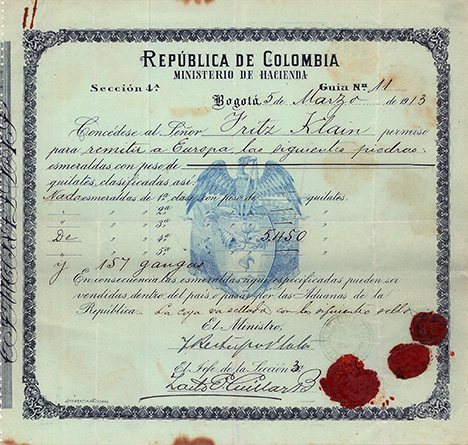 11
REPÚBLICA DE COLOMBIA
MINISTERIO DE HACIENDA
Sección 4ª Guía Nº 11
Bogotá 5 de Marzo de 1913
Concédese al Señor Fritz Klain permiso
para remitir a Europa las siguientes piedras
esmeraldas con peso de
quilates, clasificadas así:
Nada esmeraldas de 1ª clase con peso de quilates.
" " 2ª " " "
" " 3ª " " "
De " " 4ª " " 5.450 "
" " 5ª " " "
y 157 gangas
En consecuencia las esmeraldas aquí especificadas pueden ser
vendidas dentro del país o pasar por las Aduanas de la
República. La caja va sellada con el siguiente sello
El Ministro,
El Jefe de la Sección 3ª